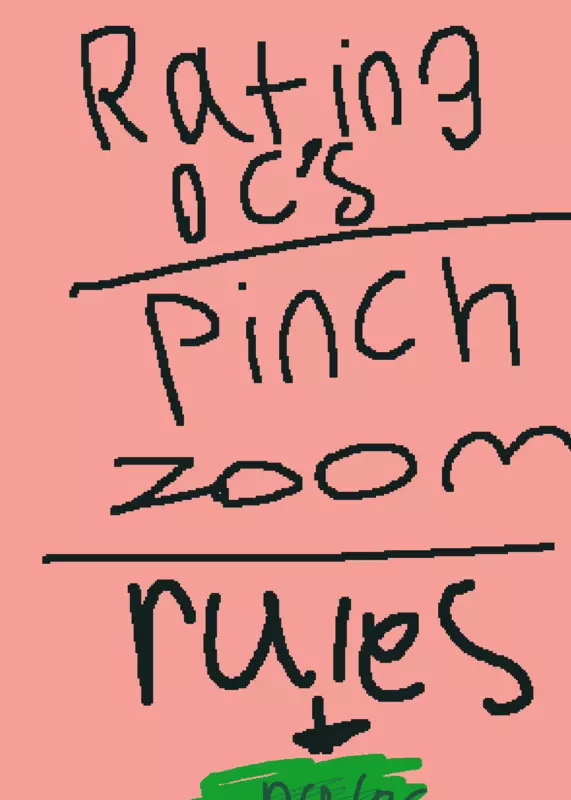 Rating
OC's
Pinch
zoom
rules